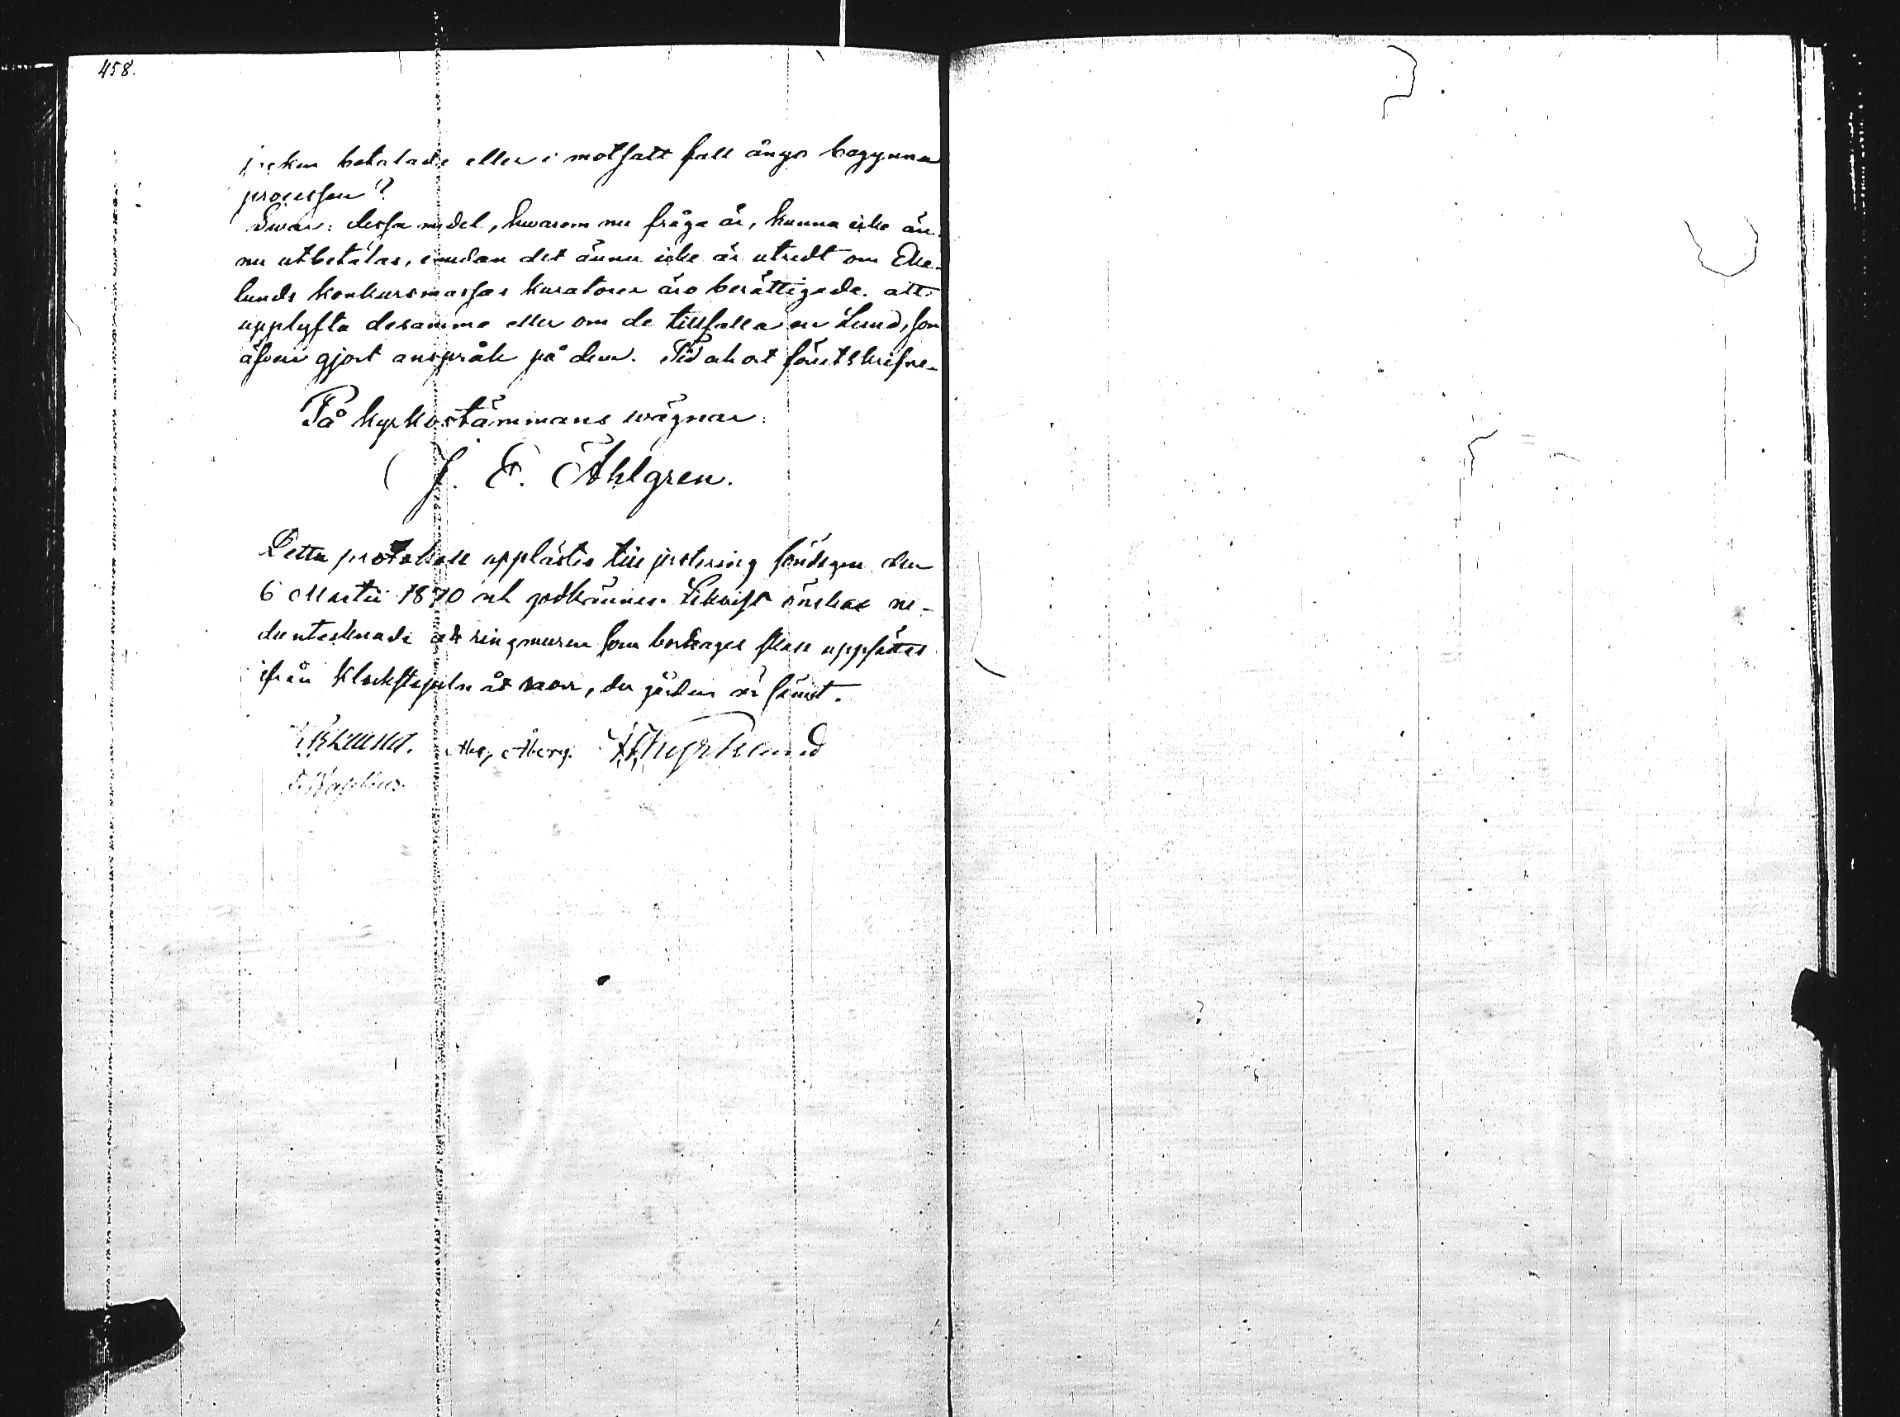 458.
betalade eller i motsatt fall ånyo begynna
processen?
Swar: dessa medel, hwarom nu fråga är, kunna icke än-
nu utbetalas, emedan det ännu icke är utredt om Eke-
lunds konkursmassas kuratorer äro berättigade att
upplyfta desamma eller om de tillfalla en Lund, som
äfven gjort anspråk på dem. Tid och ort förutskrifne.
På kyrkostämmans wägnar:
J. E. Åhlgren.
Detta protokoll upplästes till justering söndagen den
6 Martii 1870 och godkännes. Likwist önskar ne-
dantecknade att ringmuren som borttages skall uppsättas
ifrån klockstapeln åt norr, der gärden är sämst.
Åberg.